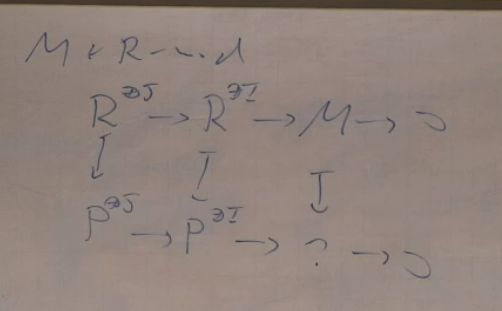 M ∈ R-mod
R^{⊕J} → R^{⊕I} → M → 0
↓ ↓ ↓
P^{⊕J} → P^{⊕I} → ? → 0